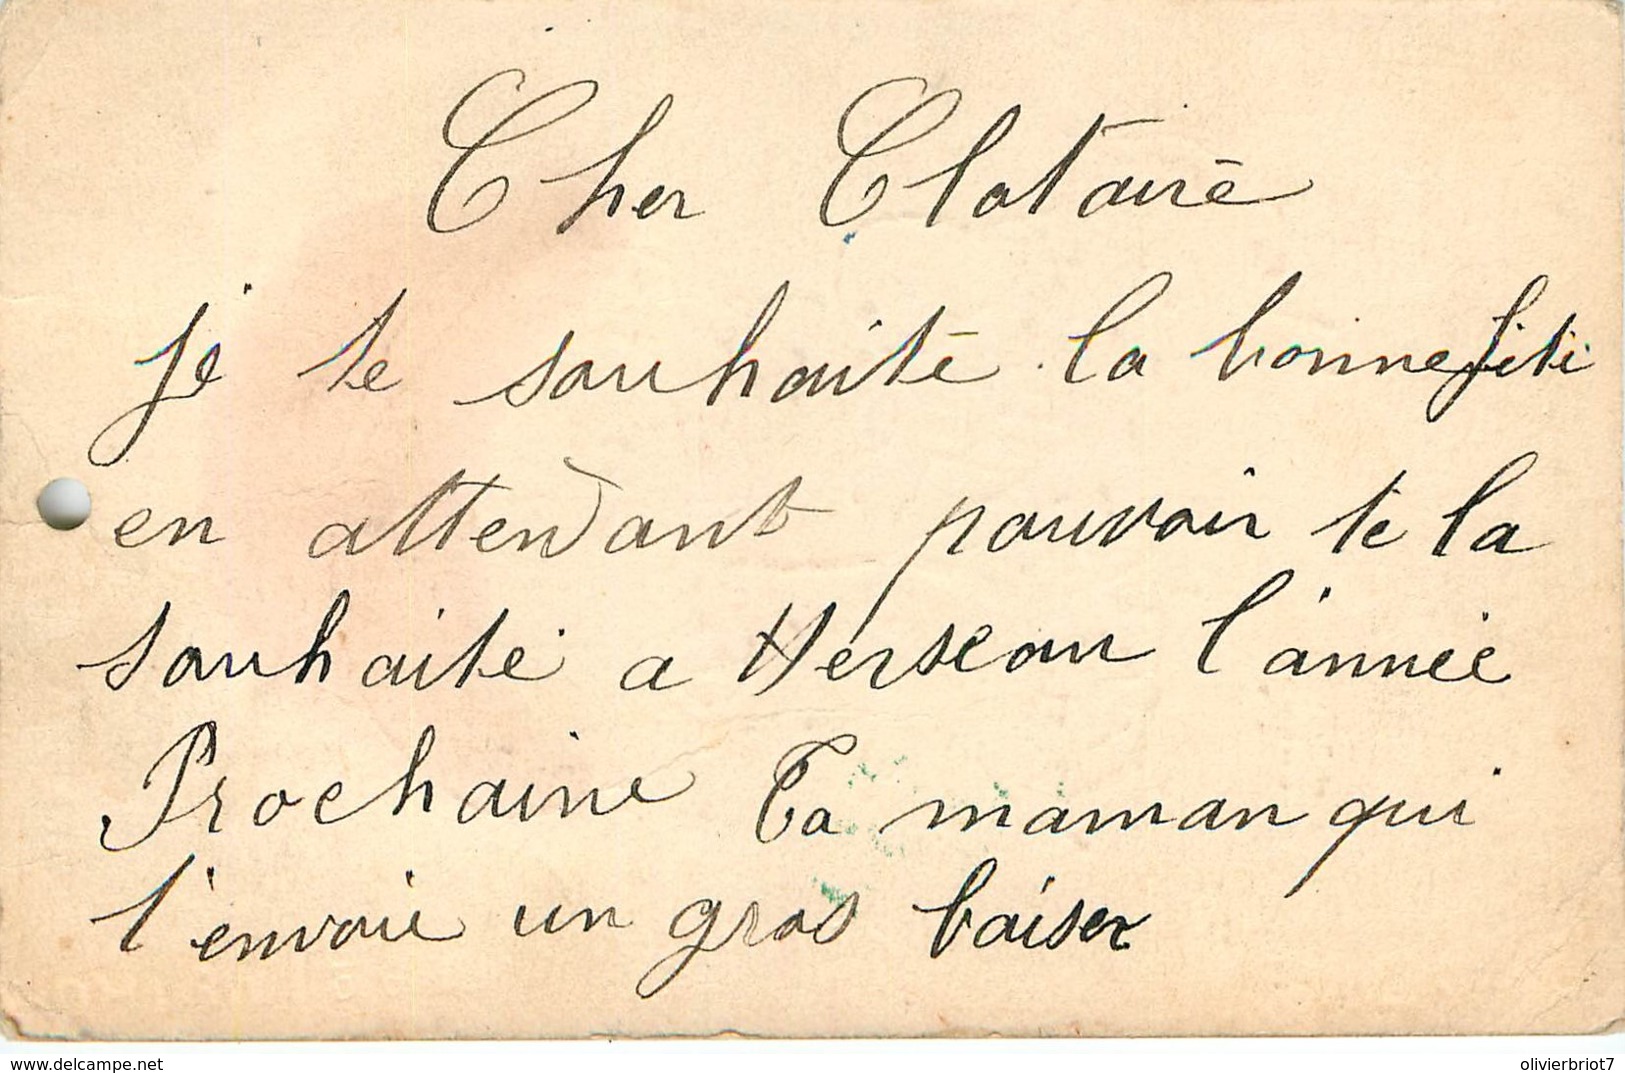 Cher Clotaire
je te souhaite la bonne fête
en attendant pouvoir te la
souhaite a Herseau l'année
Prochaine Ta maman qui
t'envoie un gros baiser
delcampe.net
olivierbriot7